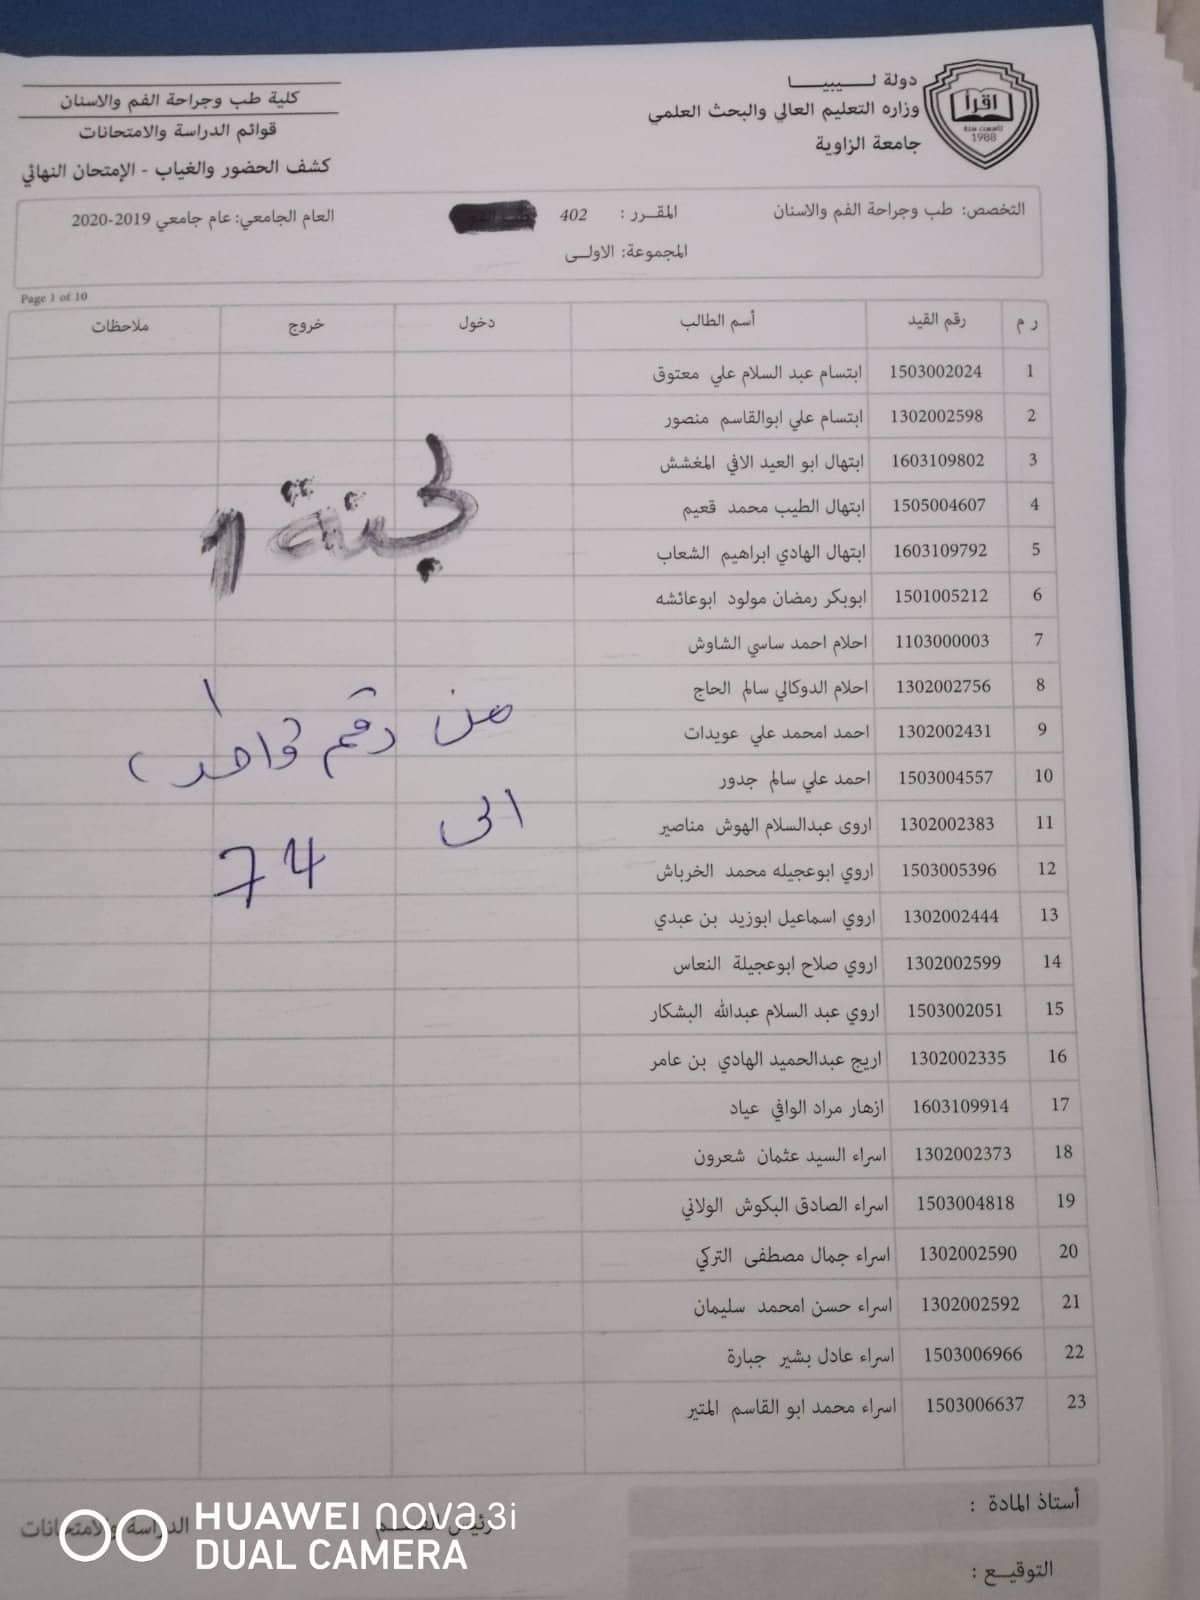 دولة لـــيبيــــا
وزاره التعليم العالي والبحث العلمي
جامعة الزاوية
اقرأ
1988
كلية طب وجراحة الفم والاسنان
قوائم الدراسة والامتحانات
كشف الحضور والغياب - الإمتحان النهائي
التخصص: طب وجراحة الفم والاسنان المقــرر : 402 العام الجامعي: عام جامعي 2019-2020
المجموعة: الاولــى
Page 1 of 10
ر م رقم القيد أسم الطالب دخول خروج ملاحظات
1 1503002024 ابتسام عبد السلام علي معتوق
2 1302002598 ابتسام علي ابوالقاسم منصور
3 1603109802 ابتهال ابو العيد الافي المغشش
4 1505004607 ابتهال الطيب محمد قعيم
5 1603109792 ابتهال الهادي ابراهيم الشعاب
6 1501005212 ابوبكر رمضان مولود ابوعائشه
7 1103000003 احلام احمد ساسي الشاوش
8 1302002756 احلام الدوكالي سالم الحاج
9 1302002431 احمد امحمد علي عويدات
10 1503004557 احمد علي سالم جدور
11 1302002383 اروى عبدالسلام الهوش مناصير
12 1503005396 اروي ابوعجيله محمد الخرباش
13 1302002444 اروي اسماعيل ابوزيد بن عبدي
14 1302002599 اروي صلاح ابوعجيلة النعاس
15 1503002051 اروي عبد السلام عبدالله البشكار
16 1302002335 اريج عبدالحميد الهادي بن عامر
17 1603109914 ازهار مراد الوافي عياد
18 1302002373 اسراء السيد عثمان شعرون
19 1503004818 اسراء الصادق البكوش الولاني
20 1302002590 اسراء جمال مصطفى التركي
21 1302002592 اسراء حسن امحمد سليمان
22 1503006966 اسراء عادل بشير جبارة
23 1503006637 اسراء محمد ابو القاسم المتير
لجنة 1
من رقم واحد 1
الى 74
أستاذ المادة :
رئيس القسـم
الدراسة والامتحانات
التوقيــع :
HUAWEI nova 3i
DUAL CAMERA